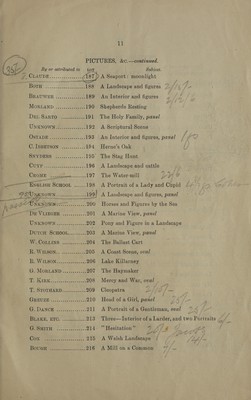 11
PICTURES, &c.—continued.
By or attributed to LOT Subject.
CLAUDE ............ 187 A Seaport: moonlight
BOTH ............ 188 A Landscape and figures
BRAUWER ............ 189 An Interior and figures
MORLAND ............ 190 Shepherds Resting
DEL SARTO ............ 191 The Holy Family, panel
UNKNOWN ............ 192 A Scriptural Scene
OSTADE ............ 193 An Interior and figures, panel
C. IBBETSON ............ 194 Herne's Oak
SNYDERS ............ 195 The Stag Hunt
CUYP ............ 196 A Landscape and cattle
CROME ............ 197 The Water-mill
ENGLISH SCHOOL ...... 198 A Portrait of a Lady and Cupid
UNKNOWN ............ 199 A Landscape and figures, panel
UNKNOWN ............ 200 Horses and Figures by the Sea
DE VLIEGER ............ 201 A Marine View, panel
UNKNOWN ............ 202 Pony and Figure in a Landscape
DUTCH SCHOOL ............ 203 A Marine View, panel
W. COLLINS ............ 204 The Ballast Cart
R. WILSON ............ 205 A Coast Scene, oval
R. WILSON ............ 206 Lake Killarney
G. MORLAND ............ 207 The Haymaker
T. KIRK ............ 208 Mercy and War, oval
T. STOTHARD ............ 209 Cleopatra
GREUZE ............ 210 Head of a Girl, panel
G. DANCE ............ 211 A Portrait of a Gentleman, oval
BLAKE, ETC. ............ 213 Three—Interior of a Larder, and two Portraits
G. SMITH ............ 214 "Hesitation"
COX ............ 215 A Welsh Landscape
BOUGH ............ 216 A Mill on a Common